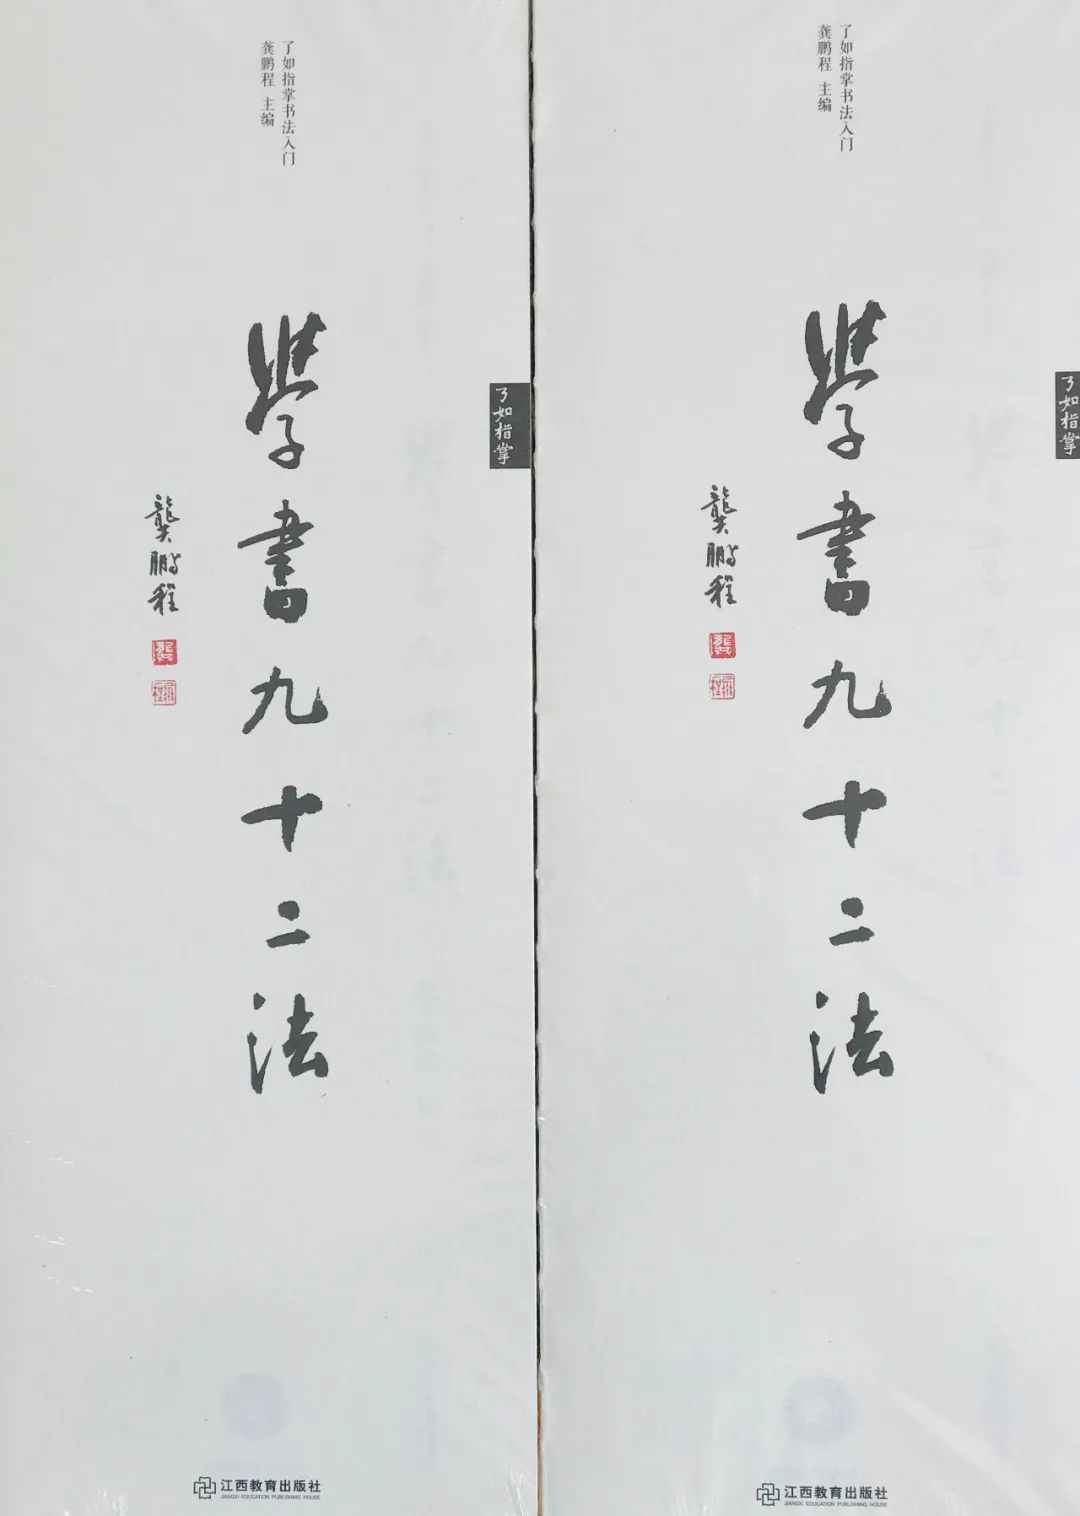 了如指掌书法入门
龚鹏程 主编
了如指掌
學書九十二法
龔鵬程
江西教育出版社
JIANGXI EDUCATION PUBLISHING HOUSE
了如指掌书法入门
龚鹏程 主编
了如指掌
學書九十二法
龔鵬程
江西教育出版社
JIANGXI EDUCATION PUBLISHING HOUSE